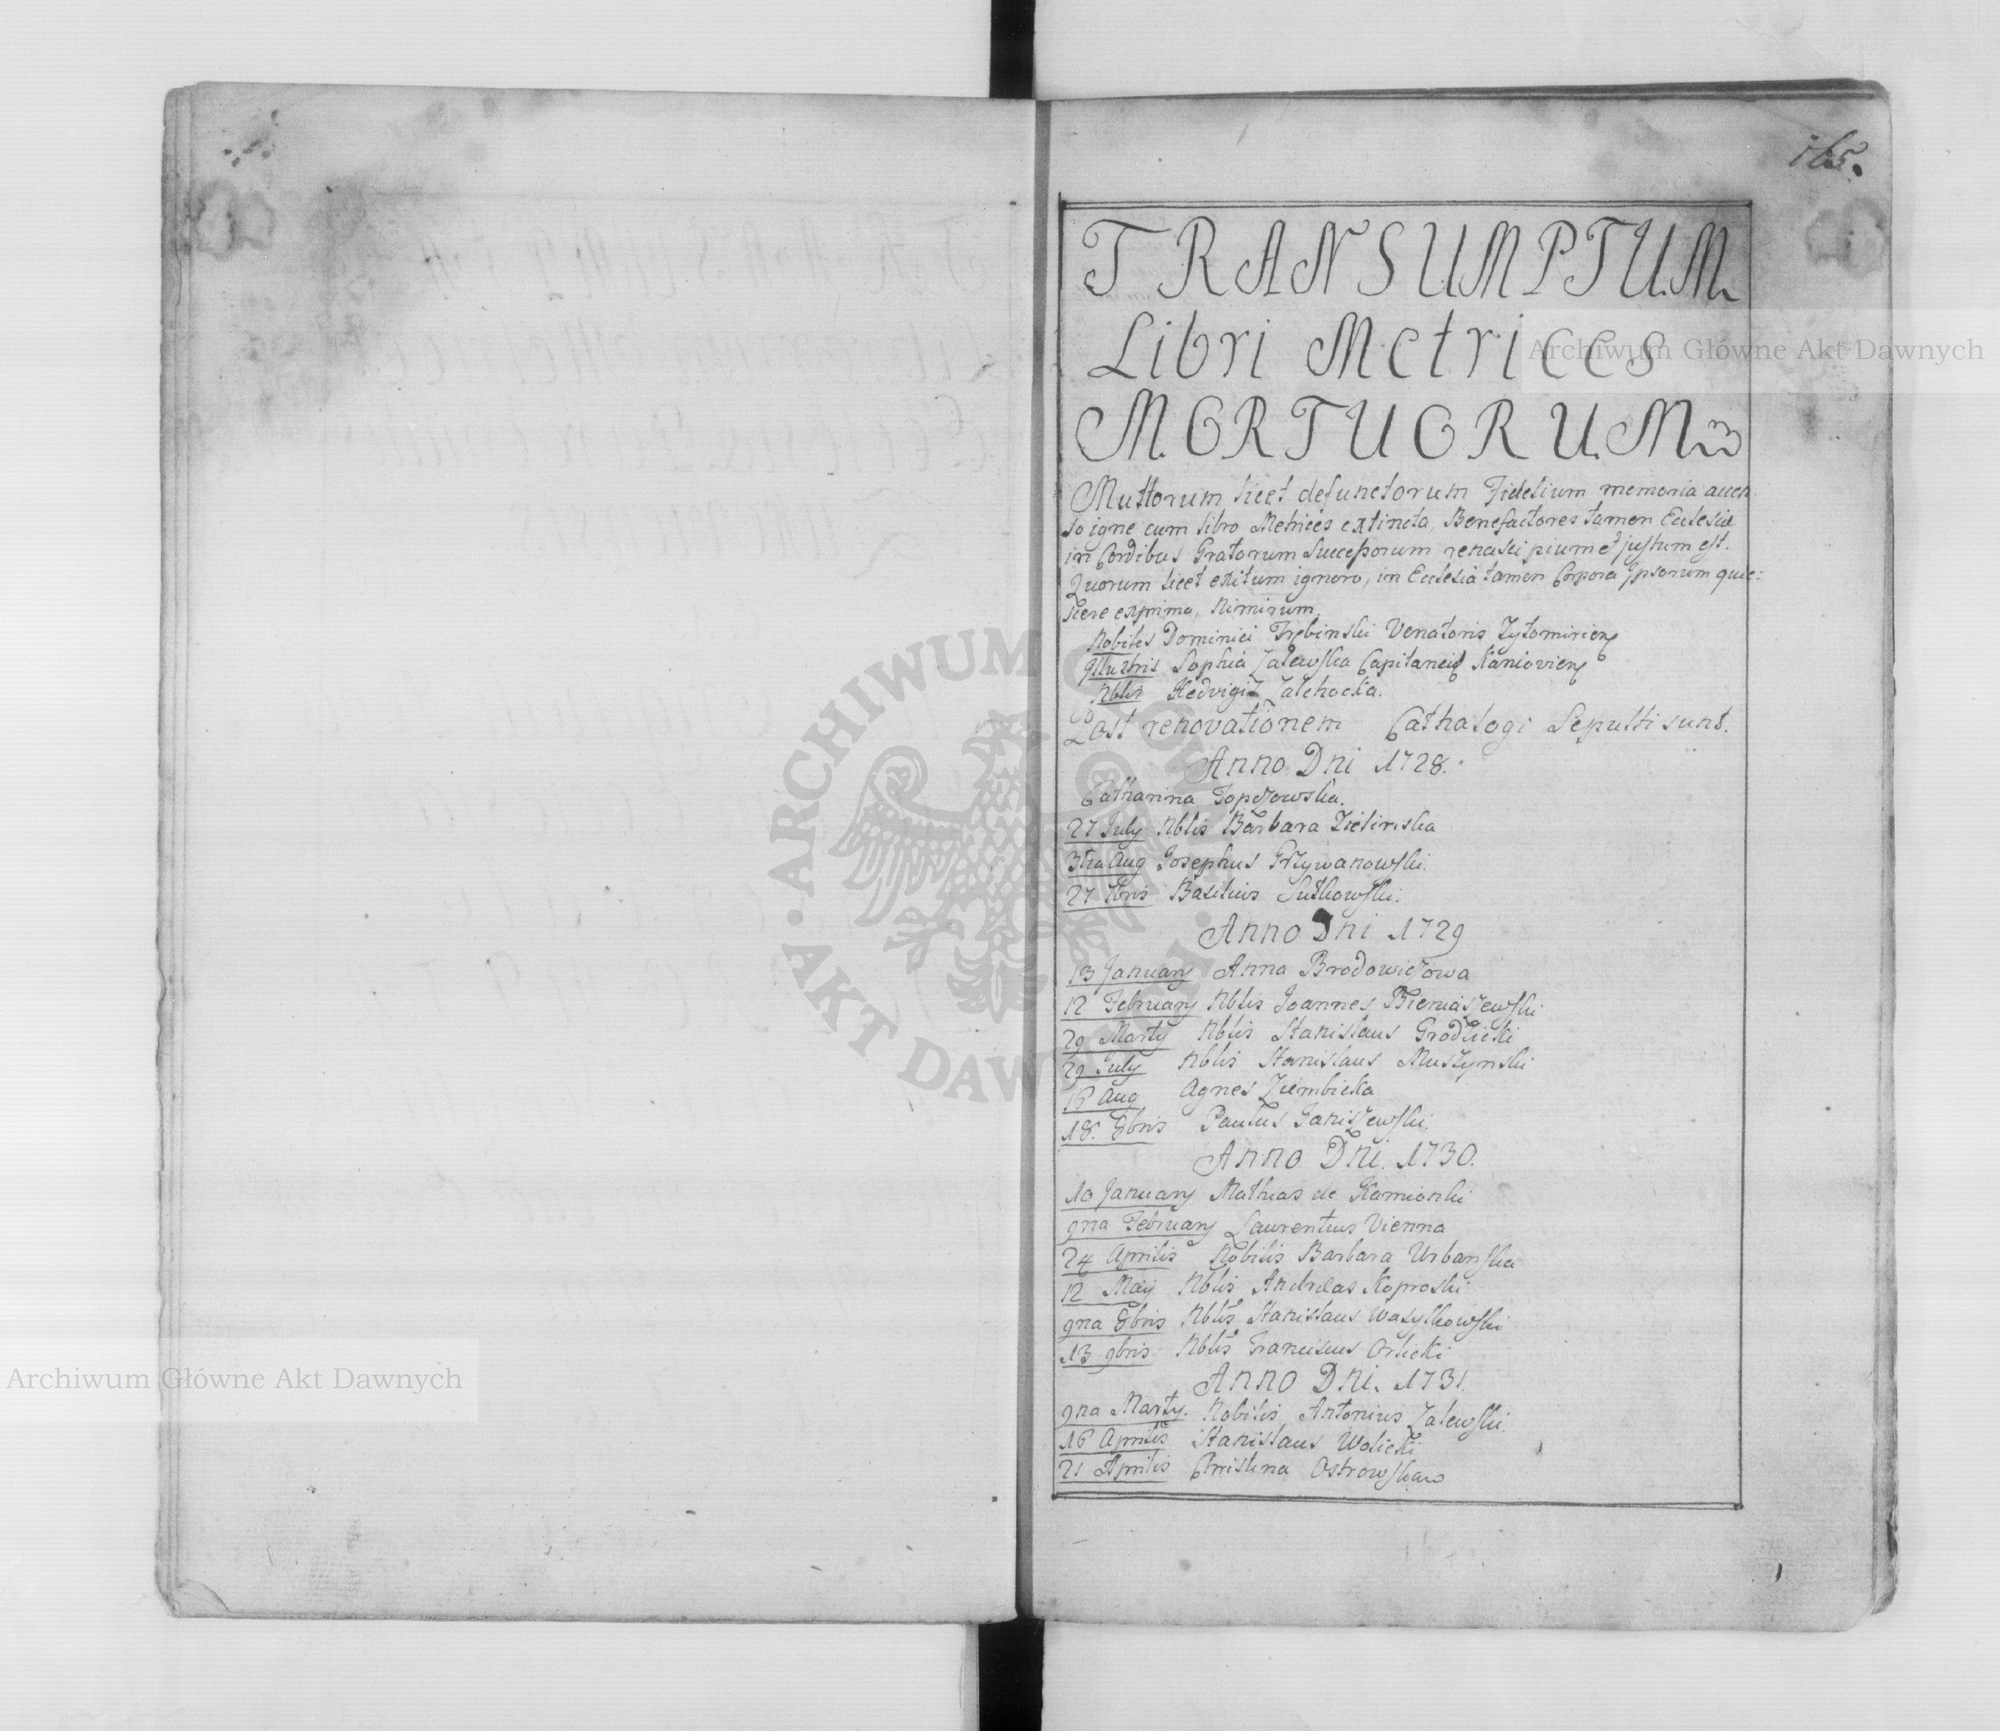 165.
TRANSUMPTUM
Libri Metrices
MORTUORUM
Multorum licet defunctorum Fidelium memoria accen
so igne cum libro Metrices extincta, Benefactores tamen Ecclesiæ
in Cordibus Gratorum Successorum renasci pium et justum est.
Quorum licet exitum ignoro, in Ecclesia tamen Corpora Ipsorum quie=
scere exprimo, Nimirum
Nobilis Dominici Trębinski Venatoris Zytomirien
Illustris Sophia Zalewska Capitaneiß Kaniovien
Nblis Hedvigiz Zalehocka.
Post renovationem Cathalogi Sepulti sunt.
Anno Dni 1728.
Catharina Topczowska.
27 July Nblis Barbara Zielinska
3tia Aug Josephus Grzywanowski.
27 Basilius Sutkowski.
Anno Dni 1729
13 January Anna Brodowiczowa
12 February Nblis Joannes Bieniaszewski
29 Marty Nblis Stanislaus Grodzicki
29 July Nblis Stanislaus Muszynski
16 Aug Agnes Ziembicka
18. 8bris Paulus Janiszewski.
Anno Dni. 1730.
10 January Mathias de Kamionki
9na February Laurentius Vienna
24 Aprilis Nobilis Barbara Urbanska
12 May Nblis Andreas Koproski
9na 8bris Nblis Stanislaus Wasylkowski
13 9bris Nblis Franciscus Orlicki
Anno Dni. 1731.
9na Marty. Nobilis Antonius Zalewski.
16 Aprilis Stanislaus Wolicki
21 Aprilis Christina Ostrowska
Archiwum Główne Akt Dawnych
Archiwum Główne Akt Dawnych
ARCHIWUM GŁÓWNE AKT DAWNYCH